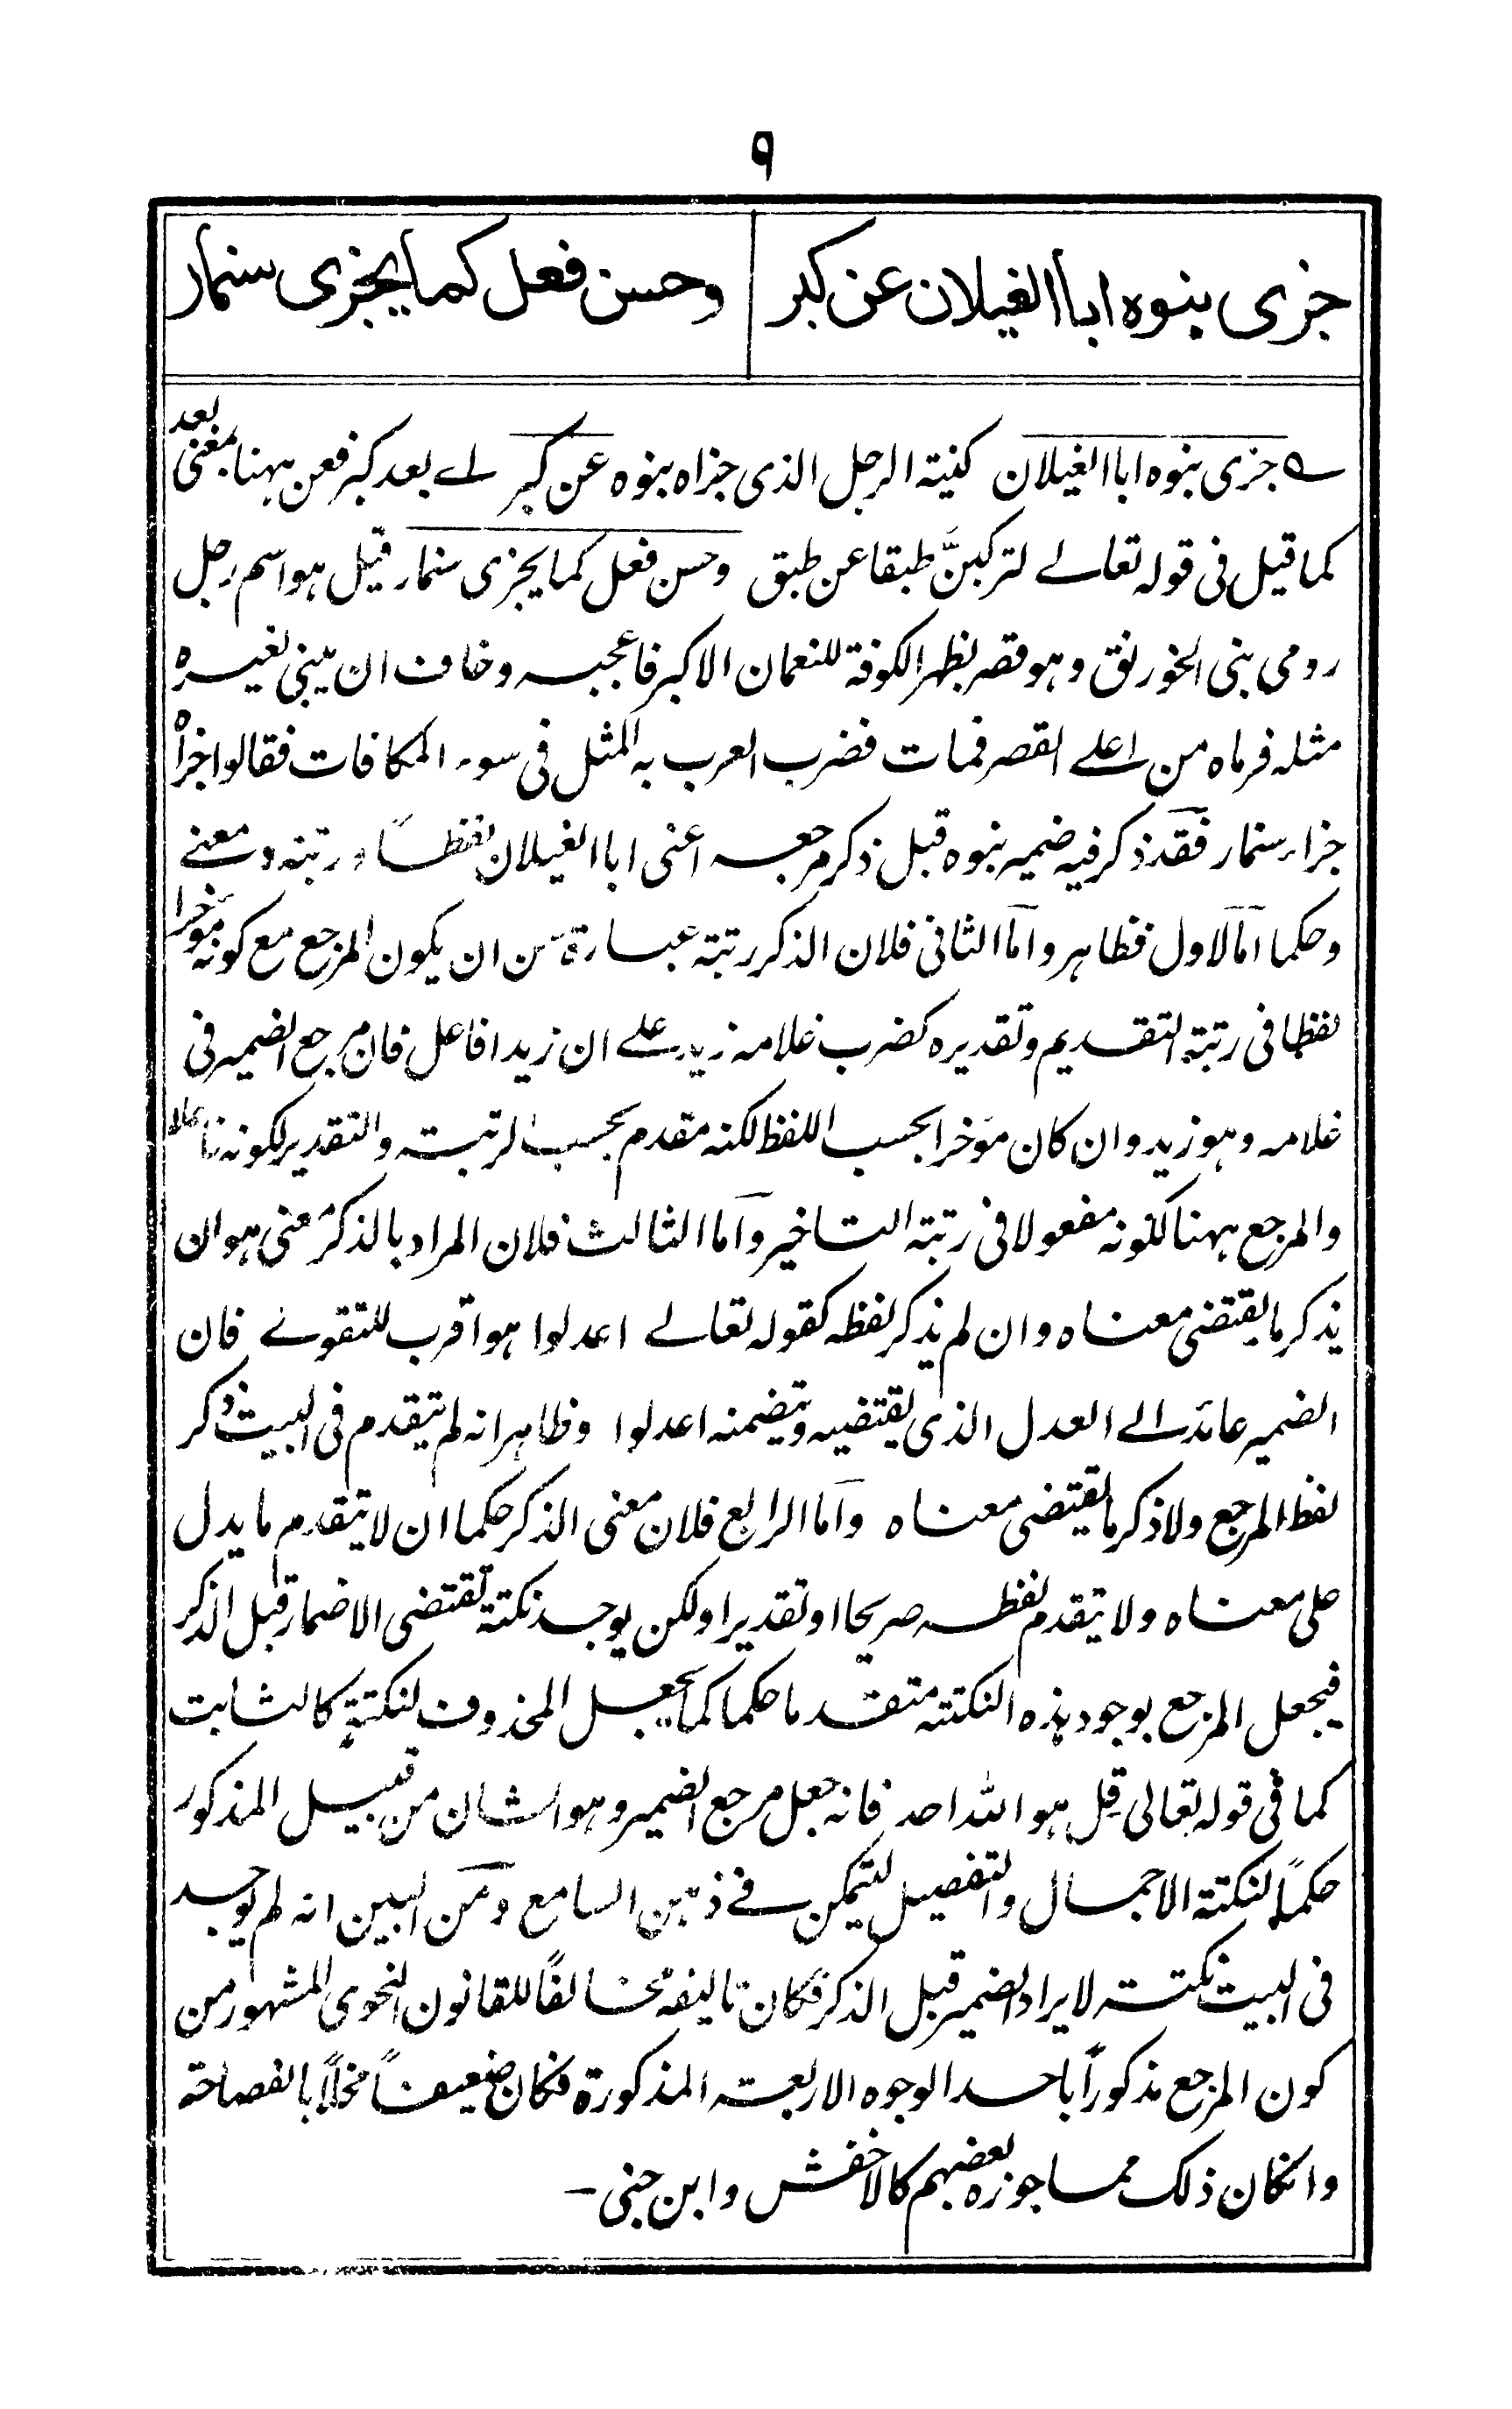 ٩
جزى بنوه ابا الغيلان عن كبر
وحسن فعل كما يجزى سنمار
جزى بنوه ابا الغيلان كنية الرجل الذى جزاه بنوه عن كبر اے بعد كبر فعن ههنا بمعنى بعد
كما قيل فى قوله تعالے لتركبنَّ طبقا عن طبق وحسن فعل كما يجزى سنمار قيل هو اسم رجل
رومى بنى الخورنق وهو قصر بظهر الكوفة للنعمان الاكبر فاعجبه وخاف ان يبنى لغيره
مثله فرماه من اعلے القصر فمات فضرب العرب به المثل فى سوء المكافات فقالوا جزاه
جزاء سنمار فقد ذكر فيه ضمير بنوه قبل ذكر مرجعه اعنى ابا الغيلان لفظاً ورتبة ومعنے
وحكما اما الاول فظاهر واما الثانى فلان الذكر رتبة عبارة عن ان يكون المرجع مع كونه مؤخرا
لفظا فى رتبة التقديم وتقديره كضرب غلامه زيد علے ان زيدا فاعل فان مرجع الضمير فى
غلامه وهو زيد وان كان مؤخرا بحسب اللفظ لكنه مقدم بحسب الرتبة والتقدير لكونه فاعلا
والمرجع ههنا لكونه مفعولا فى رتبة التاخير واما الثالث فلان المراد بالذكر معنى هو ان
يذكر ما يقتضى معناه وان لم يذكر لفظه كقوله تعالے اعدلوا هو اقرب للتقوے فان
الضمير عائد الے العدل الذى يقتضيه ويتضمنه اعدلوا وظاهر انه لم يتقدم فى البيت ذكر
لفظ المرجع ولا ذكر ما يقتضى معناه واما الرابع فلان معنى الذكر حكما ان لا يتقدم ما يدل
على معناه ولا يتقدم لفظه صريحا او تقديرا ولكن يوجد نكتة تقتضى الاضمار قبل الذكر
فيجعل المرجع بوجود هذه النكتة متقدما حكما كما يجعل المحذوف لنكتة كالثابت
كما فى قوله تعالى قل هو الله احد فانه جعل مرجع الضمير وهو الشان من قبيل المذكور
حكماً لنكتة الاجمال والتفصيل ليتمكن فے ذهن السامع ومن البين انه لم يوجد
فى البيت نكتة لايراد الضمير قبل الذكر فكان تاليفه مخالفاً للقانون النحوى المشهور من
كون المرجع مذكوراً باحد الوجوه الاربعة المذكورة فكان ضعيفاً مخلاً بالفصاحة
وانكان ذلك مما جوزه بعضهم كالاخفش وابن جنى -